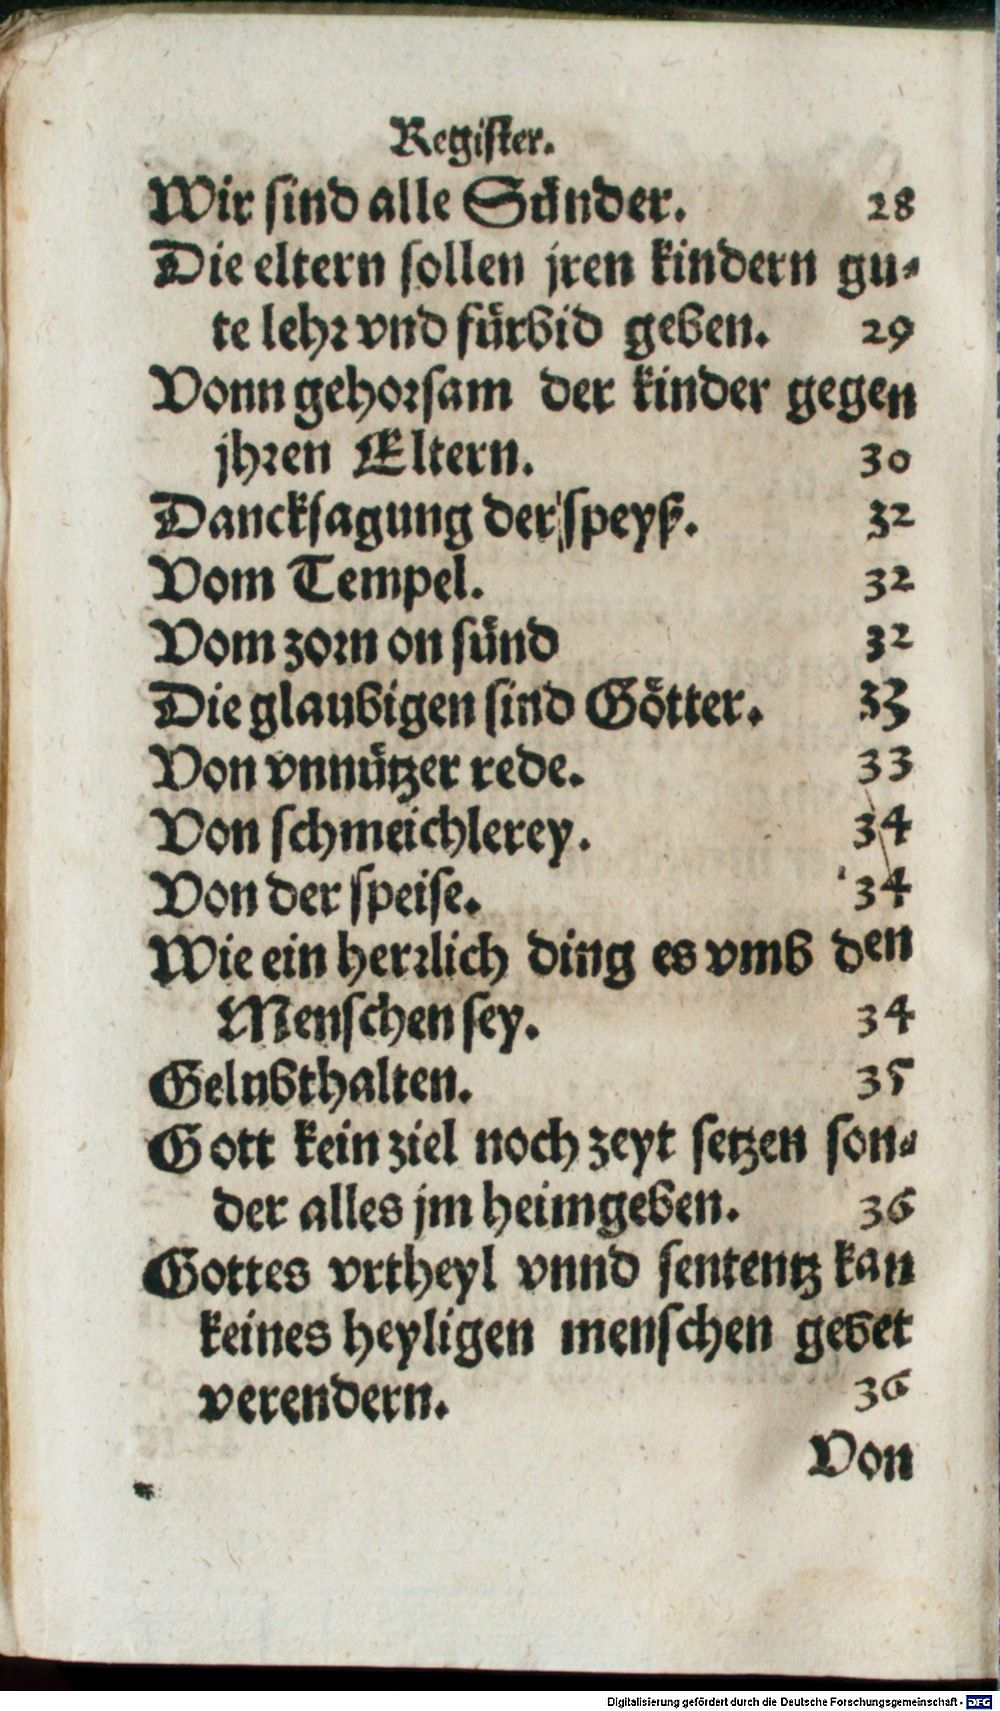 Register.
Wir sind alle Sünder. 28
Die eltern sollen jren kindern gu-
te lehr vnd fürbid geben. 29
Vonn gehorsam der kinder gegen
jhren Eltern. 30
Dancksagung der speyß. 32
Vom Tempel. 32
Vom zorn on sünd 32
Die glaubigen sind Götter. 33
Von vnnützer rede. 33
Von schmeichlerey. 34
Von der speise. 34
Wie ein herrlich ding es vmb den
Menschen sey. 34
Gelubthalten. 35
Gott kein ziel noch zeyt setzen son-
der alles jm heimgeben. 36
Gottes vrtheyl vnnd sententz kan
keines heyligen menschen gebet
verendern. 36
Von
Digitalisierung gefördert durch die Deutsche Forschungsgemeinschaft - DFG